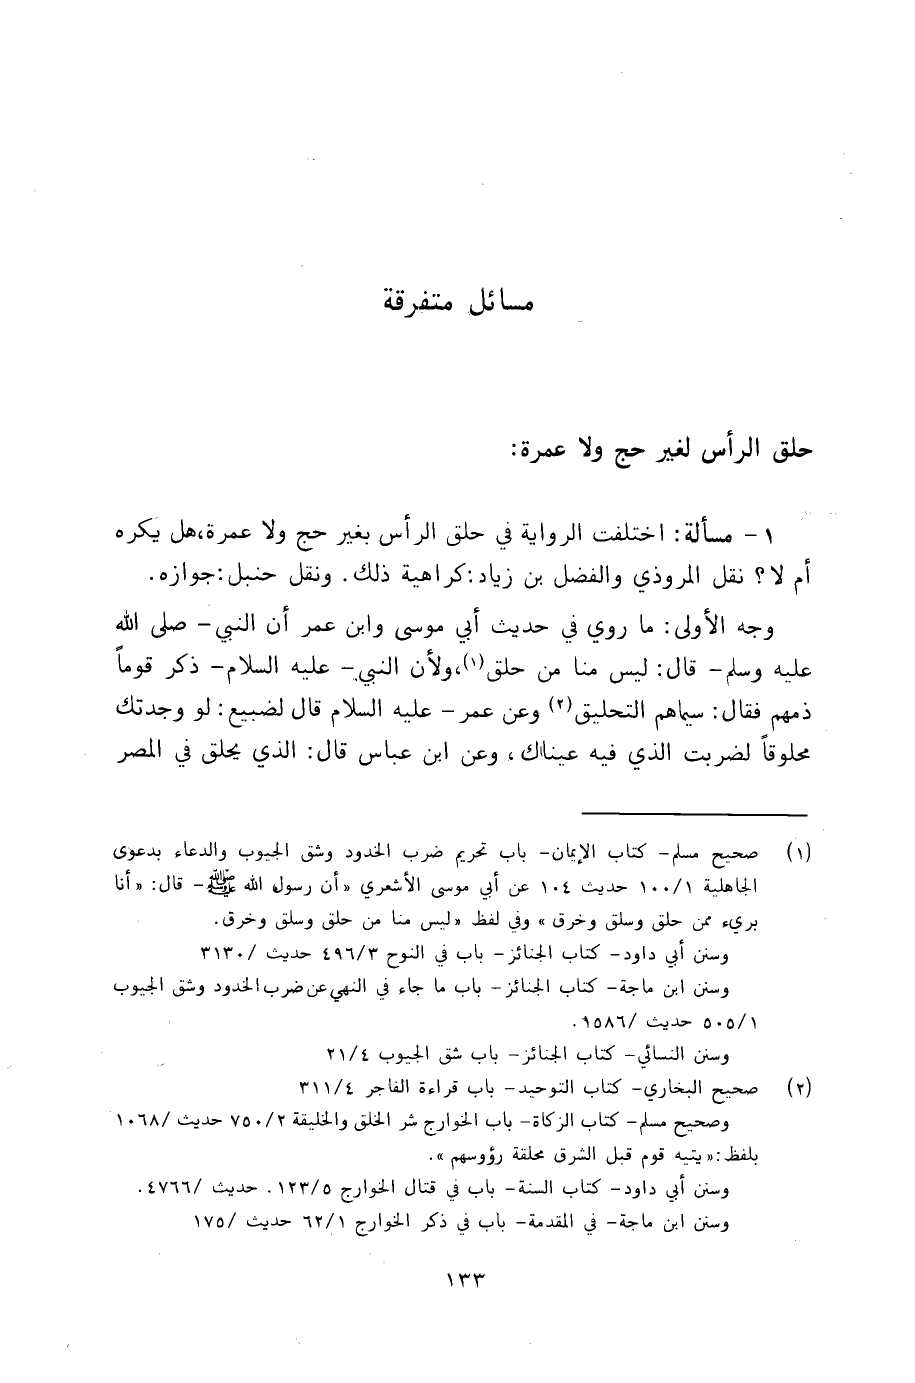 مسائل متفرقة
حلق الرأس لغير حج ولا عمرة:
١ - مسألة: اختلفت الرواية في حلق الرأس بغير حج ولا عمرة،هل يكره
أم لا؟ نقل المروذي والفضل بن زياد:كراهية ذلك. ونقل حنبل:جوازه.
وجه الأولى: ما روي في حديث أبي موسى وابن عمر أن النبي - صلى الله
عليه وسلم - قال: ليس منا من حلق(١)،ولأن النبي - عليه السلام - ذكر قوماً
ذمهم فقال: سيماهم التحليق(٢) وعن عمر - عليه السلام قال لضبيع: لو وجدتك
محلوقاً لضربت الذي فيه عيناك، وعن ابن عباس قال: الذي يحلق في المصر
(١) صحيح مسلم - كتاب الإيمان - باب تحريم ضرب الخدود وشق الجيوب والدعاء بدعوى
الجاهلية ١٠٠/١ حديث ١٠٤ عن أبي موسى الأشعري «أن رسول الله ﷺ - قال: «أنا
بريء ممن حلق وسلق وخرق» وفي لفظ «ليس منا من حلق وسلق وخرق.
وسنن أبي داود - كتاب الجنائز - باب في النوح ٤٩٦/٣ حديث /٣١٣٠
وسنن ابن ماجة - كتاب الجنائز - باب ما جاء في النهي عن ضرب الخدود وشق الجيوب
٥٠٥/١ حديث /١٥٨٦.
وسنن النسائي - كتاب الجنائز - باب شق الجيوب ٢١/٤
(٢) صحيح البخاري - كتاب التوحيد - باب قراءة الفاجر ٣١١/٤
وصحيح مسلم - كتاب الزكاة - باب الخوارج شر الخلق والخليقة ٧٥٠/٢ حديث /١٠٦٨
بلفظ:«يتيه قوم قبل الشرق محلقة رؤوسهم».
وسنن أبي داود - كتاب السنة - باب في قتال الخوارج ١٢٣/٥. حديث /٤٧٦٦.
وسنن ابن ماجة - في المقدمة - باب في ذكر الخوارج ٦٢/١ حديث /١٧٥
١٣٣